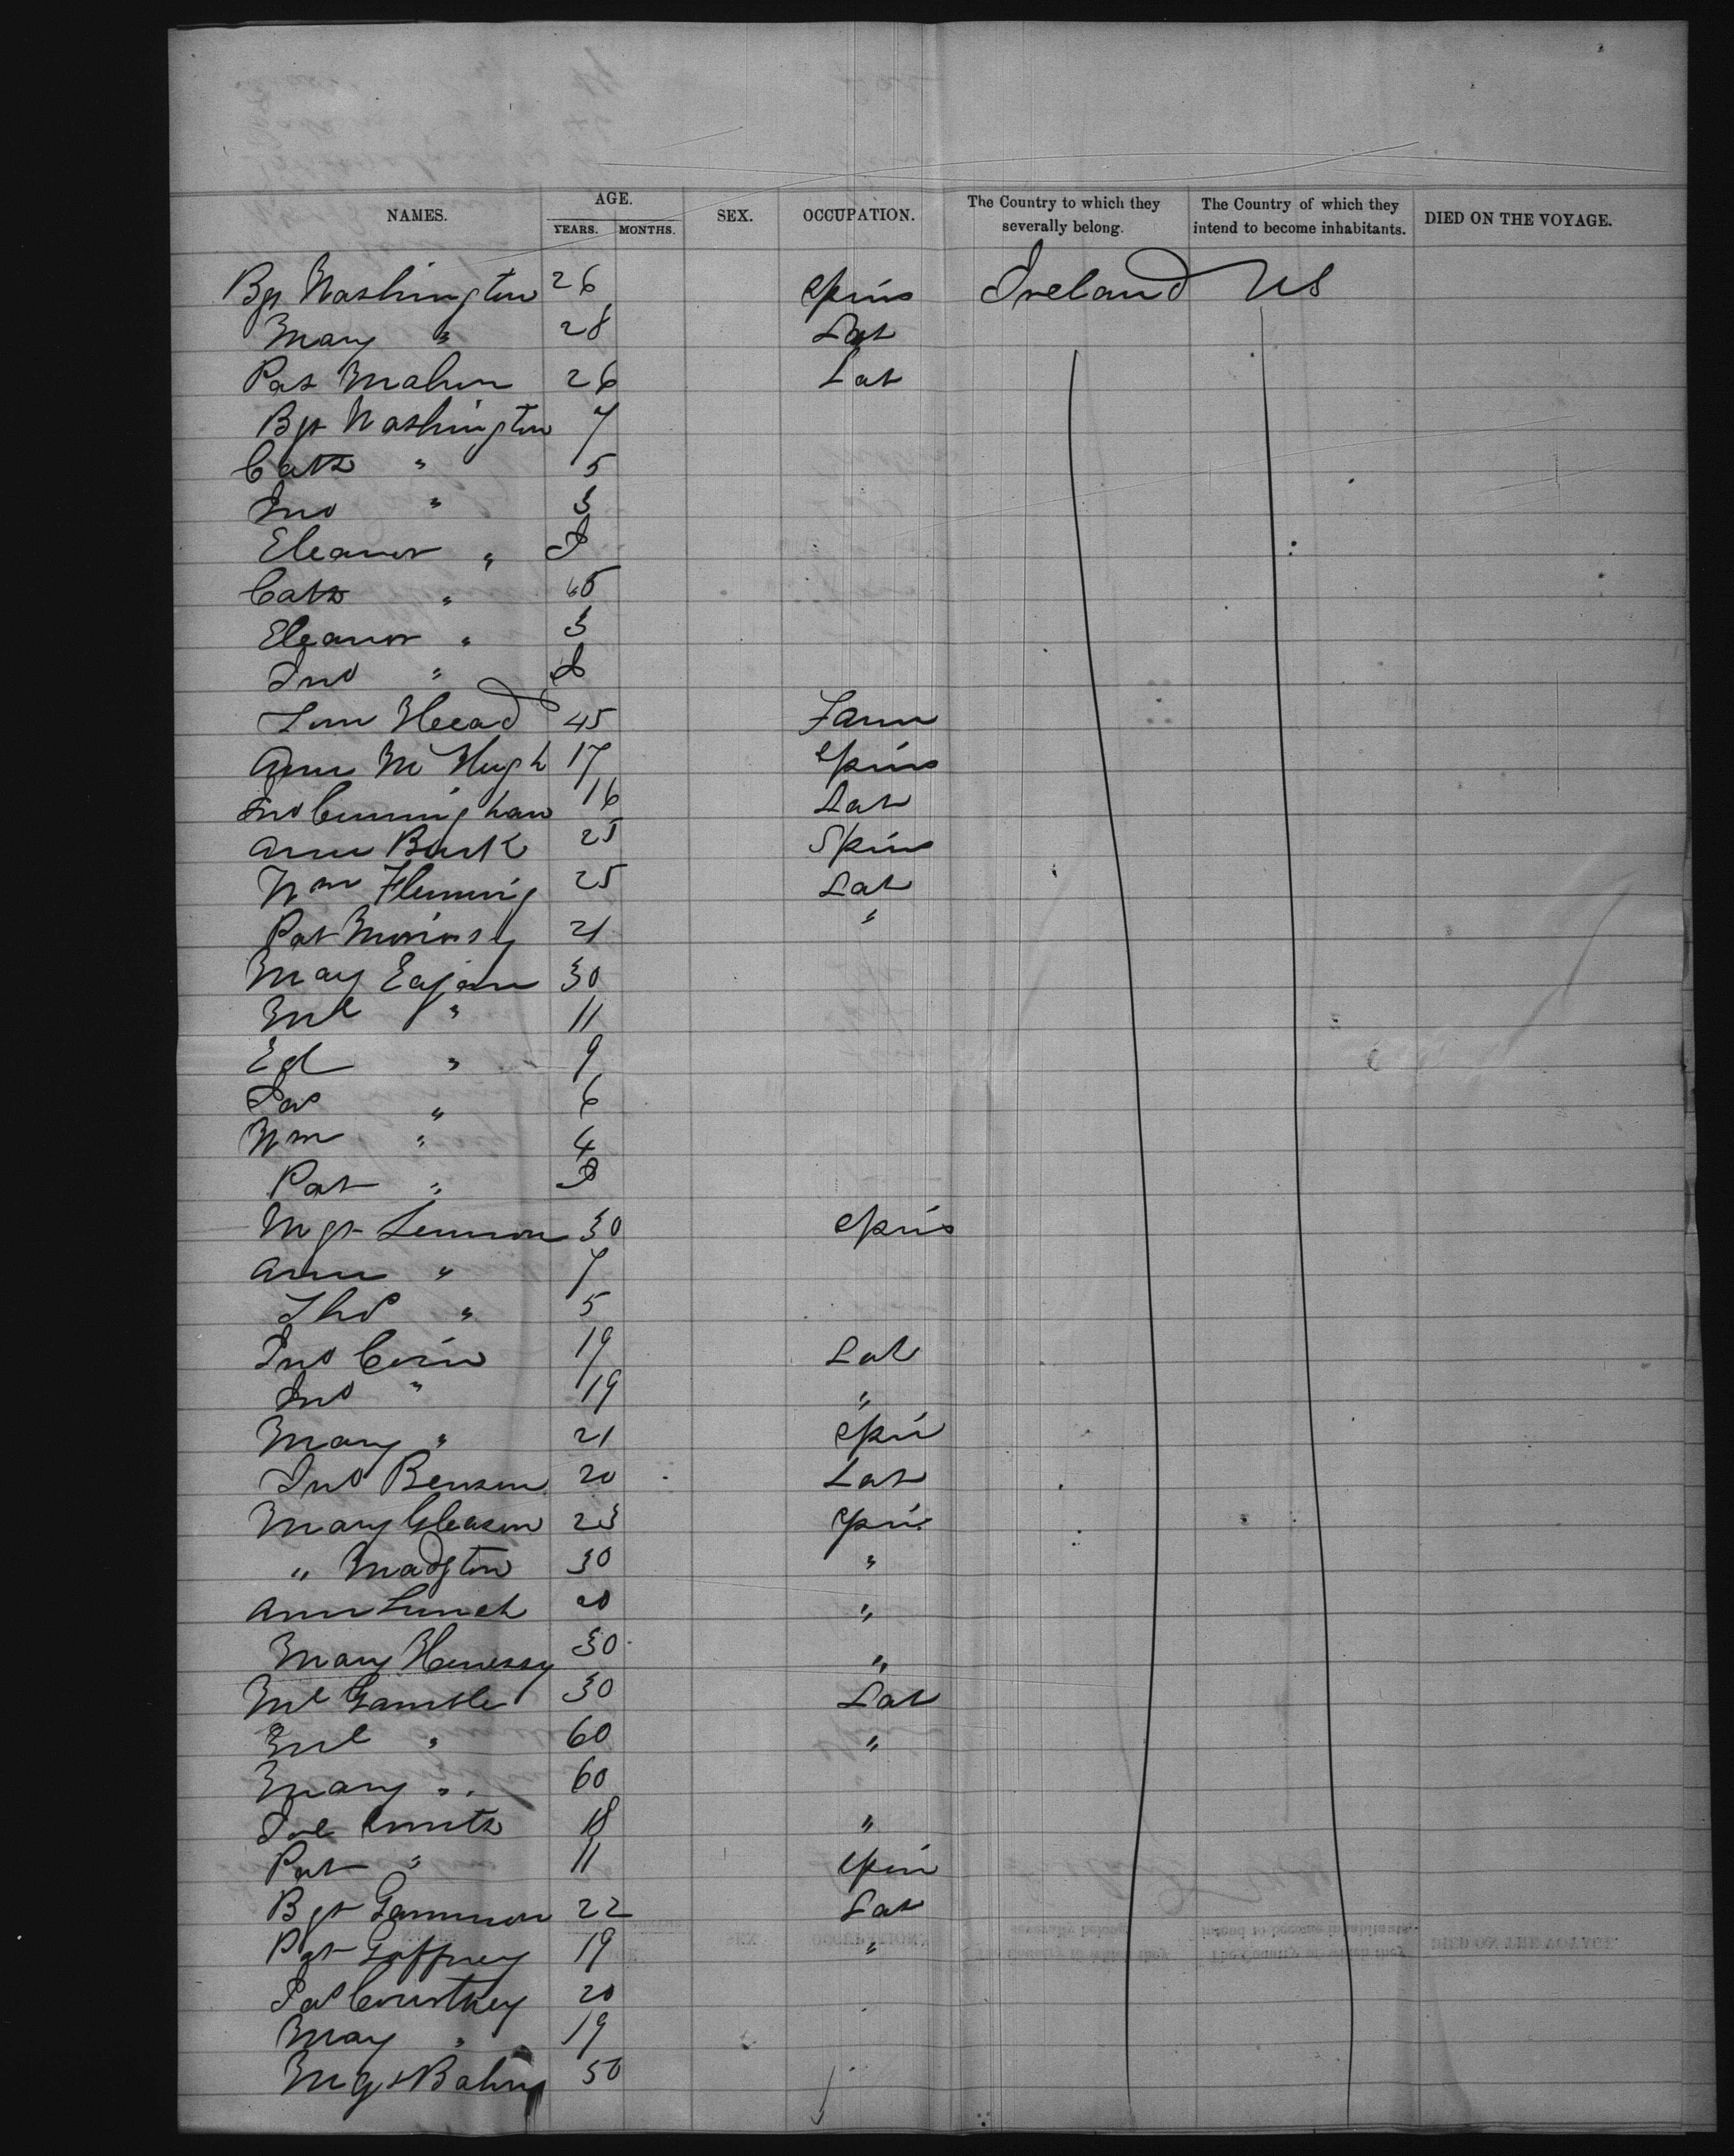 NAMES. AGE. YEARS. MONTHS. SEX. OCCUPATION. The Country to which they severally belong. The Country of which they intend to become inhabitants. DIED ON THE VOYAGE.
Bgt Washington 26 Spins Ireland US
Mary " 28 Lab
Pat Mahon 26 Lab
Bgt Washington 7
Cath " 5
Jno " 3
Eleanor "
Cath " 65
Eleanor " 3
Jno "
Head 45 Farm
Ann McHugh 17 Spins
Jno Cunningham 16 Lab
Ann Burk 25 Spins
Wm Fleming 25 Lab
Pat Morrissy 21 "
May Eagan 30
Ml " 11
Ed " 9
Jas " 6
Wm " 4
Pat "
Mgt Lennon 30 Spins
Ann " 7
Thos " 5
Jno 19 Lab
Jno " 19 "
Mary " 21 Spin
Jno Benson 20 Lab
Mary Gleason 23 Spin
" Madgton 30 "
Ann Lynch 20 "
Mary Henessy 30 "
Ml Gamble 30 Lab
Ml " 60 "
Mary " 60
Smith 18 "
Pat " 11 Spin
Bgt Gammon 22 Lab
Pat Gaffney 19 "
Jas Courtney 20
May " 19
Mgt 50